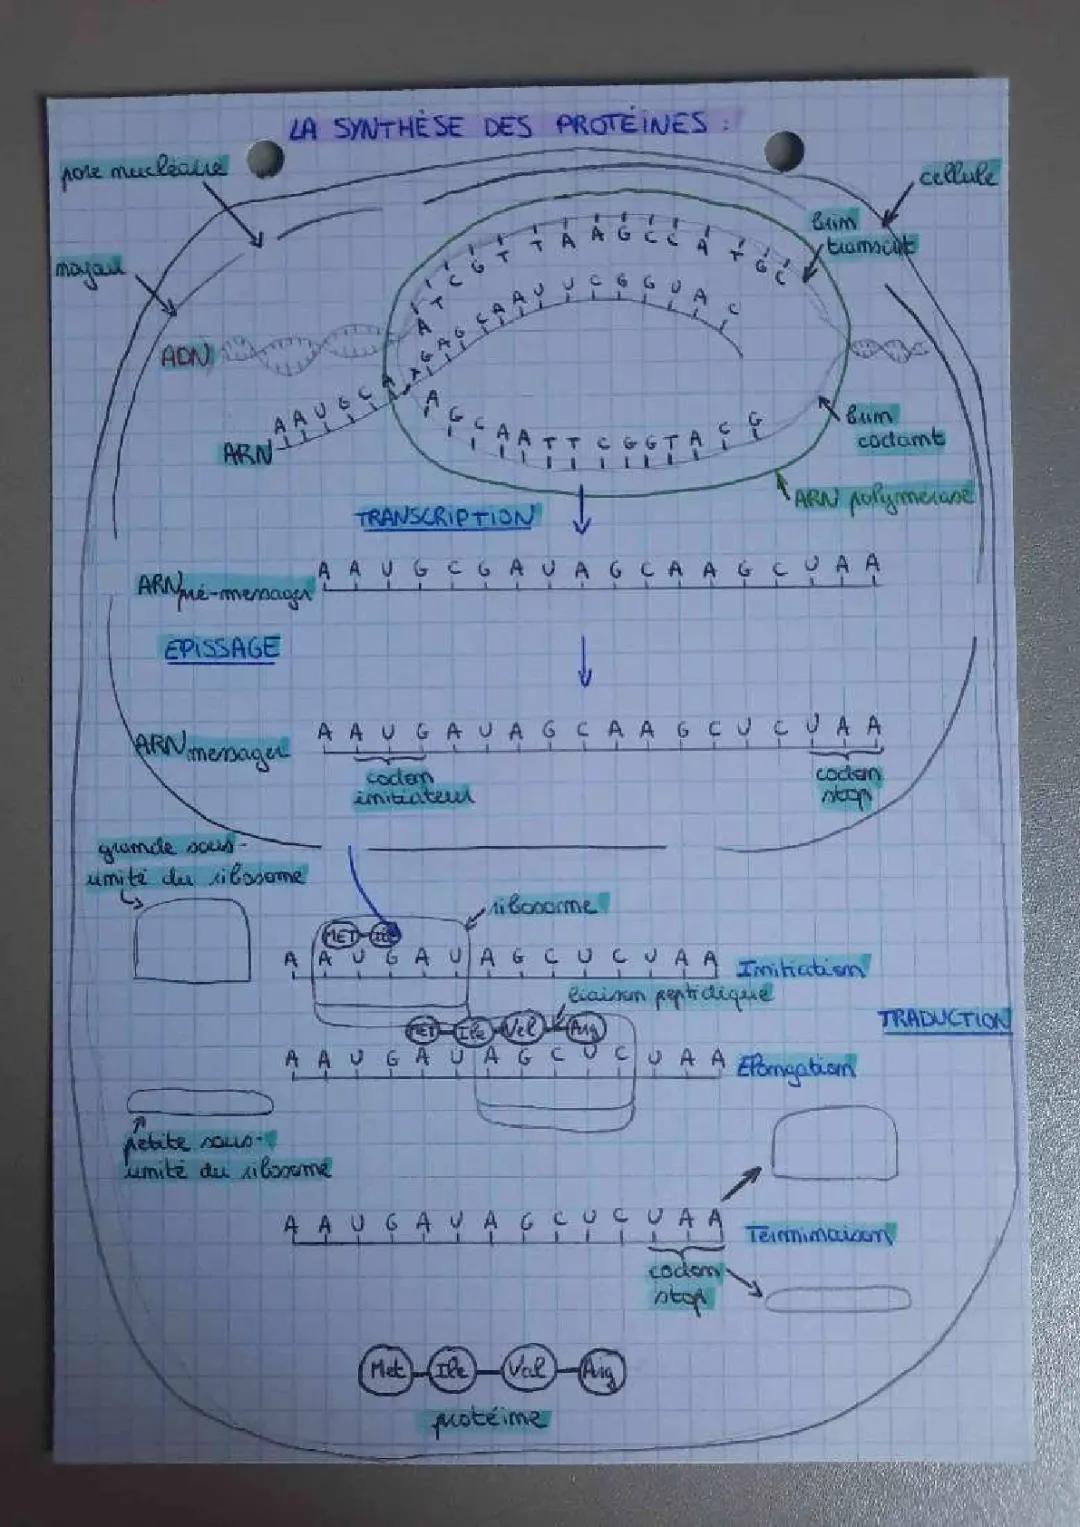 LA SYNTHÈSE DES PROTÉINES :
pore nucléaire
cellule
noyau
brin
transcrit
A T C G T T A A G C C A T G C
ADN
A G C A A U U C G G U A C
A A U G C A
ARN
A G C A A T T C G G T A C G
brin
codant
ARN polymérase
TRANSCRIPTION
ARN pré-messager
A A U G C G A U A G C A A G C U A A
EPISSAGE
ARN messager
A A U G A U A G C A A G C U C U A A
codon
initiateur
codon
stop
grande sous-
unité du ribosome
ribosome
MET Ile
A A U G A U A G C U C U A A
Initiation
liaison peptidique
TRADUCTION
MET Ile Val Arg
A A U G A U A G C U C U A A
Elongation
petite sous-
unité du ribosome
A A U G A U A G C U C U A A
Terminaison
codon
stop
Met Ile Val Arg
protéine